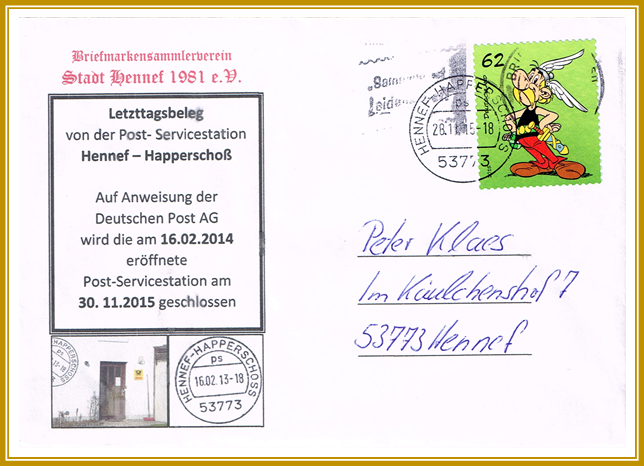 Briefmarkensammlerverein
Stadt Hennef 1981 e.V.
Letzttagsbeleg
von der Post- Servicestation
Hennef – Happerschoß
Auf Anweisung der
Deutschen Post AG
wird die am 16.02.2014
eröffnete
Post-Servicestation am
30. 11.2015 geschlossen
HAPPERSCHOSS
HENNEF-HAPPERSCHOSS
ps
16.02.13-18
53773
62
HENNEF-HAPPERSCHOSS
ps
28.11.15-18
53773
Peter Klaes
Im Käulchenshof 7
53773 Hennef